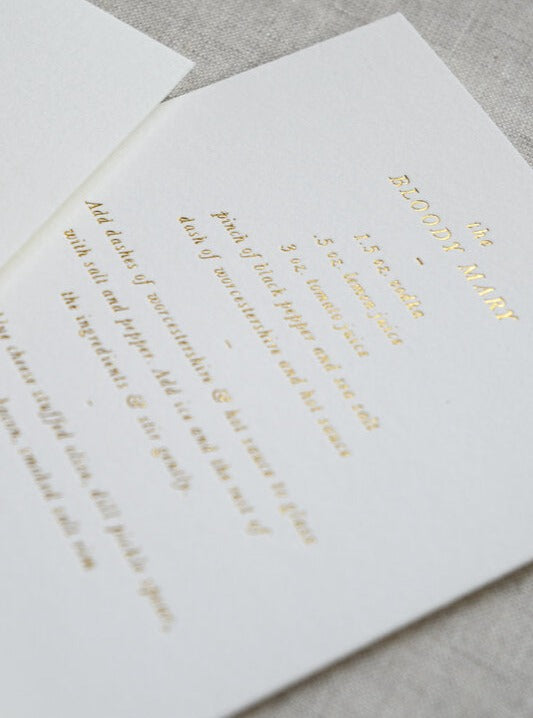 the
BLOODY MARY
-
1.5 oz. vodka
.5 oz. lemon juice
3 oz. tomato juice
pinch of black pepper and sea salt
dash of worcestershire and hot sauce
-
Add dashes of worcestershire & hot sauce to glass
with salt and pepper. Add ice and the rest of
the ingredients & stir gently.
-
blue cheese stuffed olives, dill pickle spear,
bacon, smoked salt rim